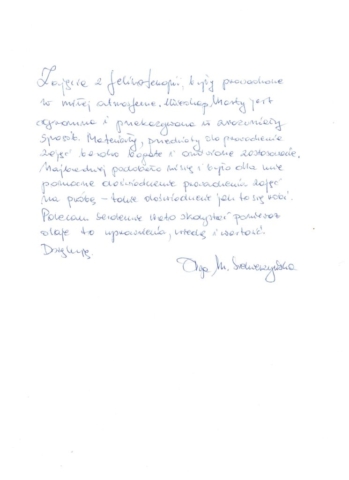 Zajęcia z felinoterapii, były prowadzone
w miłej atmosferze. Wiedza, którą jest
ogromna i przekazywana w zrozumiały
sposób. Materiały, przedmioty do prowadzenia
zajęć bardzo bogate i omówione zastosowanie.
Najbardziej podobało mi się i było dla mnie
pomocne doświadczenie prowadzenia zajęć
na próbę – takie doświadczenie jak to się robi.
Polecam serdecznie skorzystać ponieważ
daje to uprawnienia, wiedzę i wartość.
Dziękuję.
Olga M.